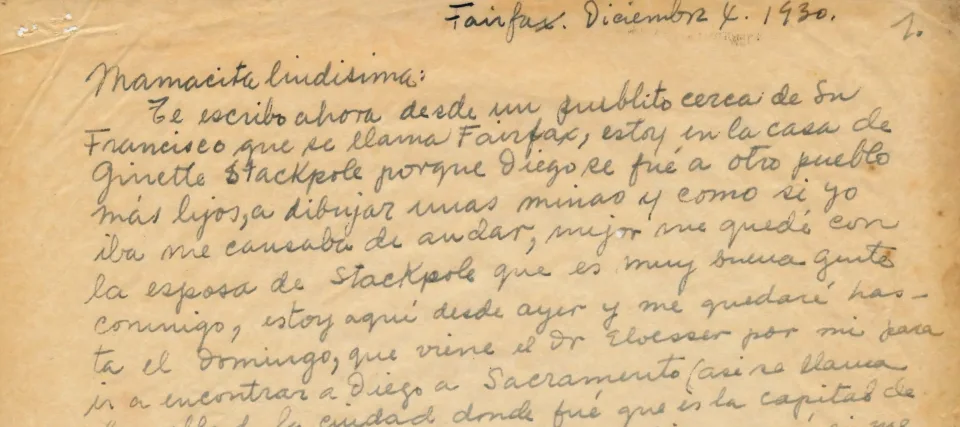 Fairfax. Diciembre 4. 1930.
1.
Mamacita lindisima:
Te escribo ahora desde un pueblito cerca de Sn
Francisco que se llama Fairfax, estoy en la casa de
Ginette Stackpole porque Diego se fué a otro pueblo
más lejos, a dibujar unas minas y como si yo
iba me causaba de andar, mejor me quedé con
la esposa de Stackpole que es muy buena gente
conmigo, estoy aquí desde ayer y me quedaré has-
ta el Domingo, que viene el Dr Eloesser por mi para
ir a encontrar a Diego a Sacramento (asi se llama
la ciudad donde fué que es la capital de
me